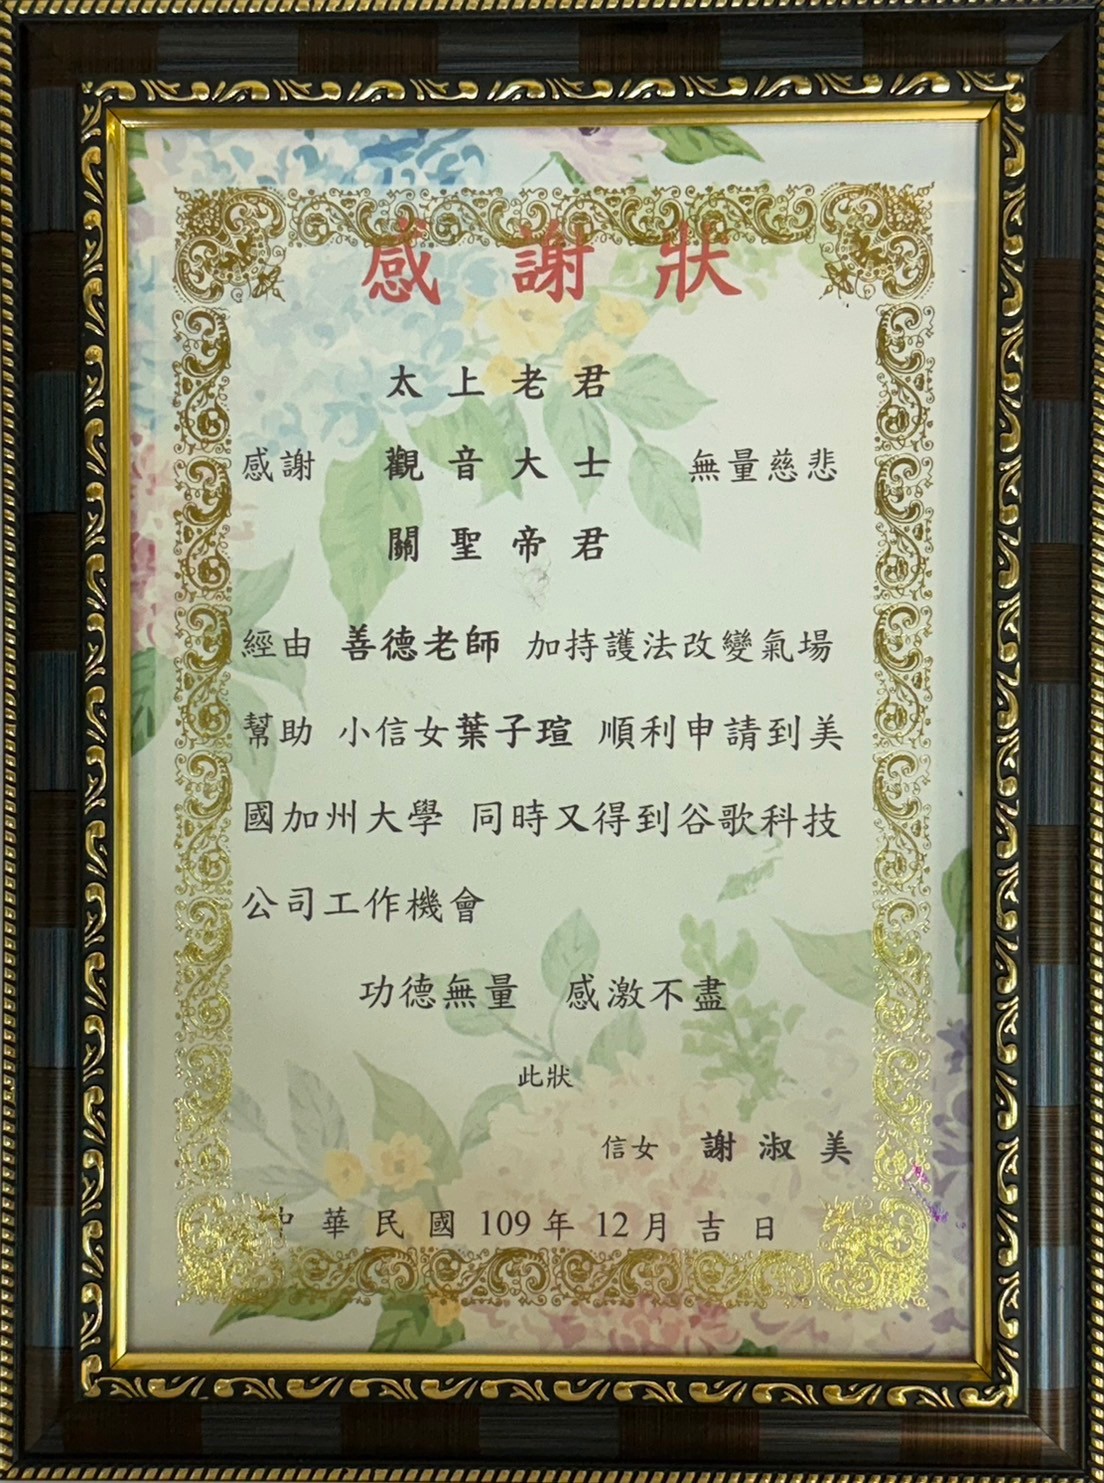 感謝狀
太上老君
感謝 觀音大士 無量慈悲
關聖帝君
經由 善德老師 加持護法改變氣場
幫助 小信女葉子瑄 順利申請到美
國加州大學 同時又得到谷歌科技
公司工作機會
功德無量 感激不盡
此狀
信女 謝淑美
中華民國109年12月吉日